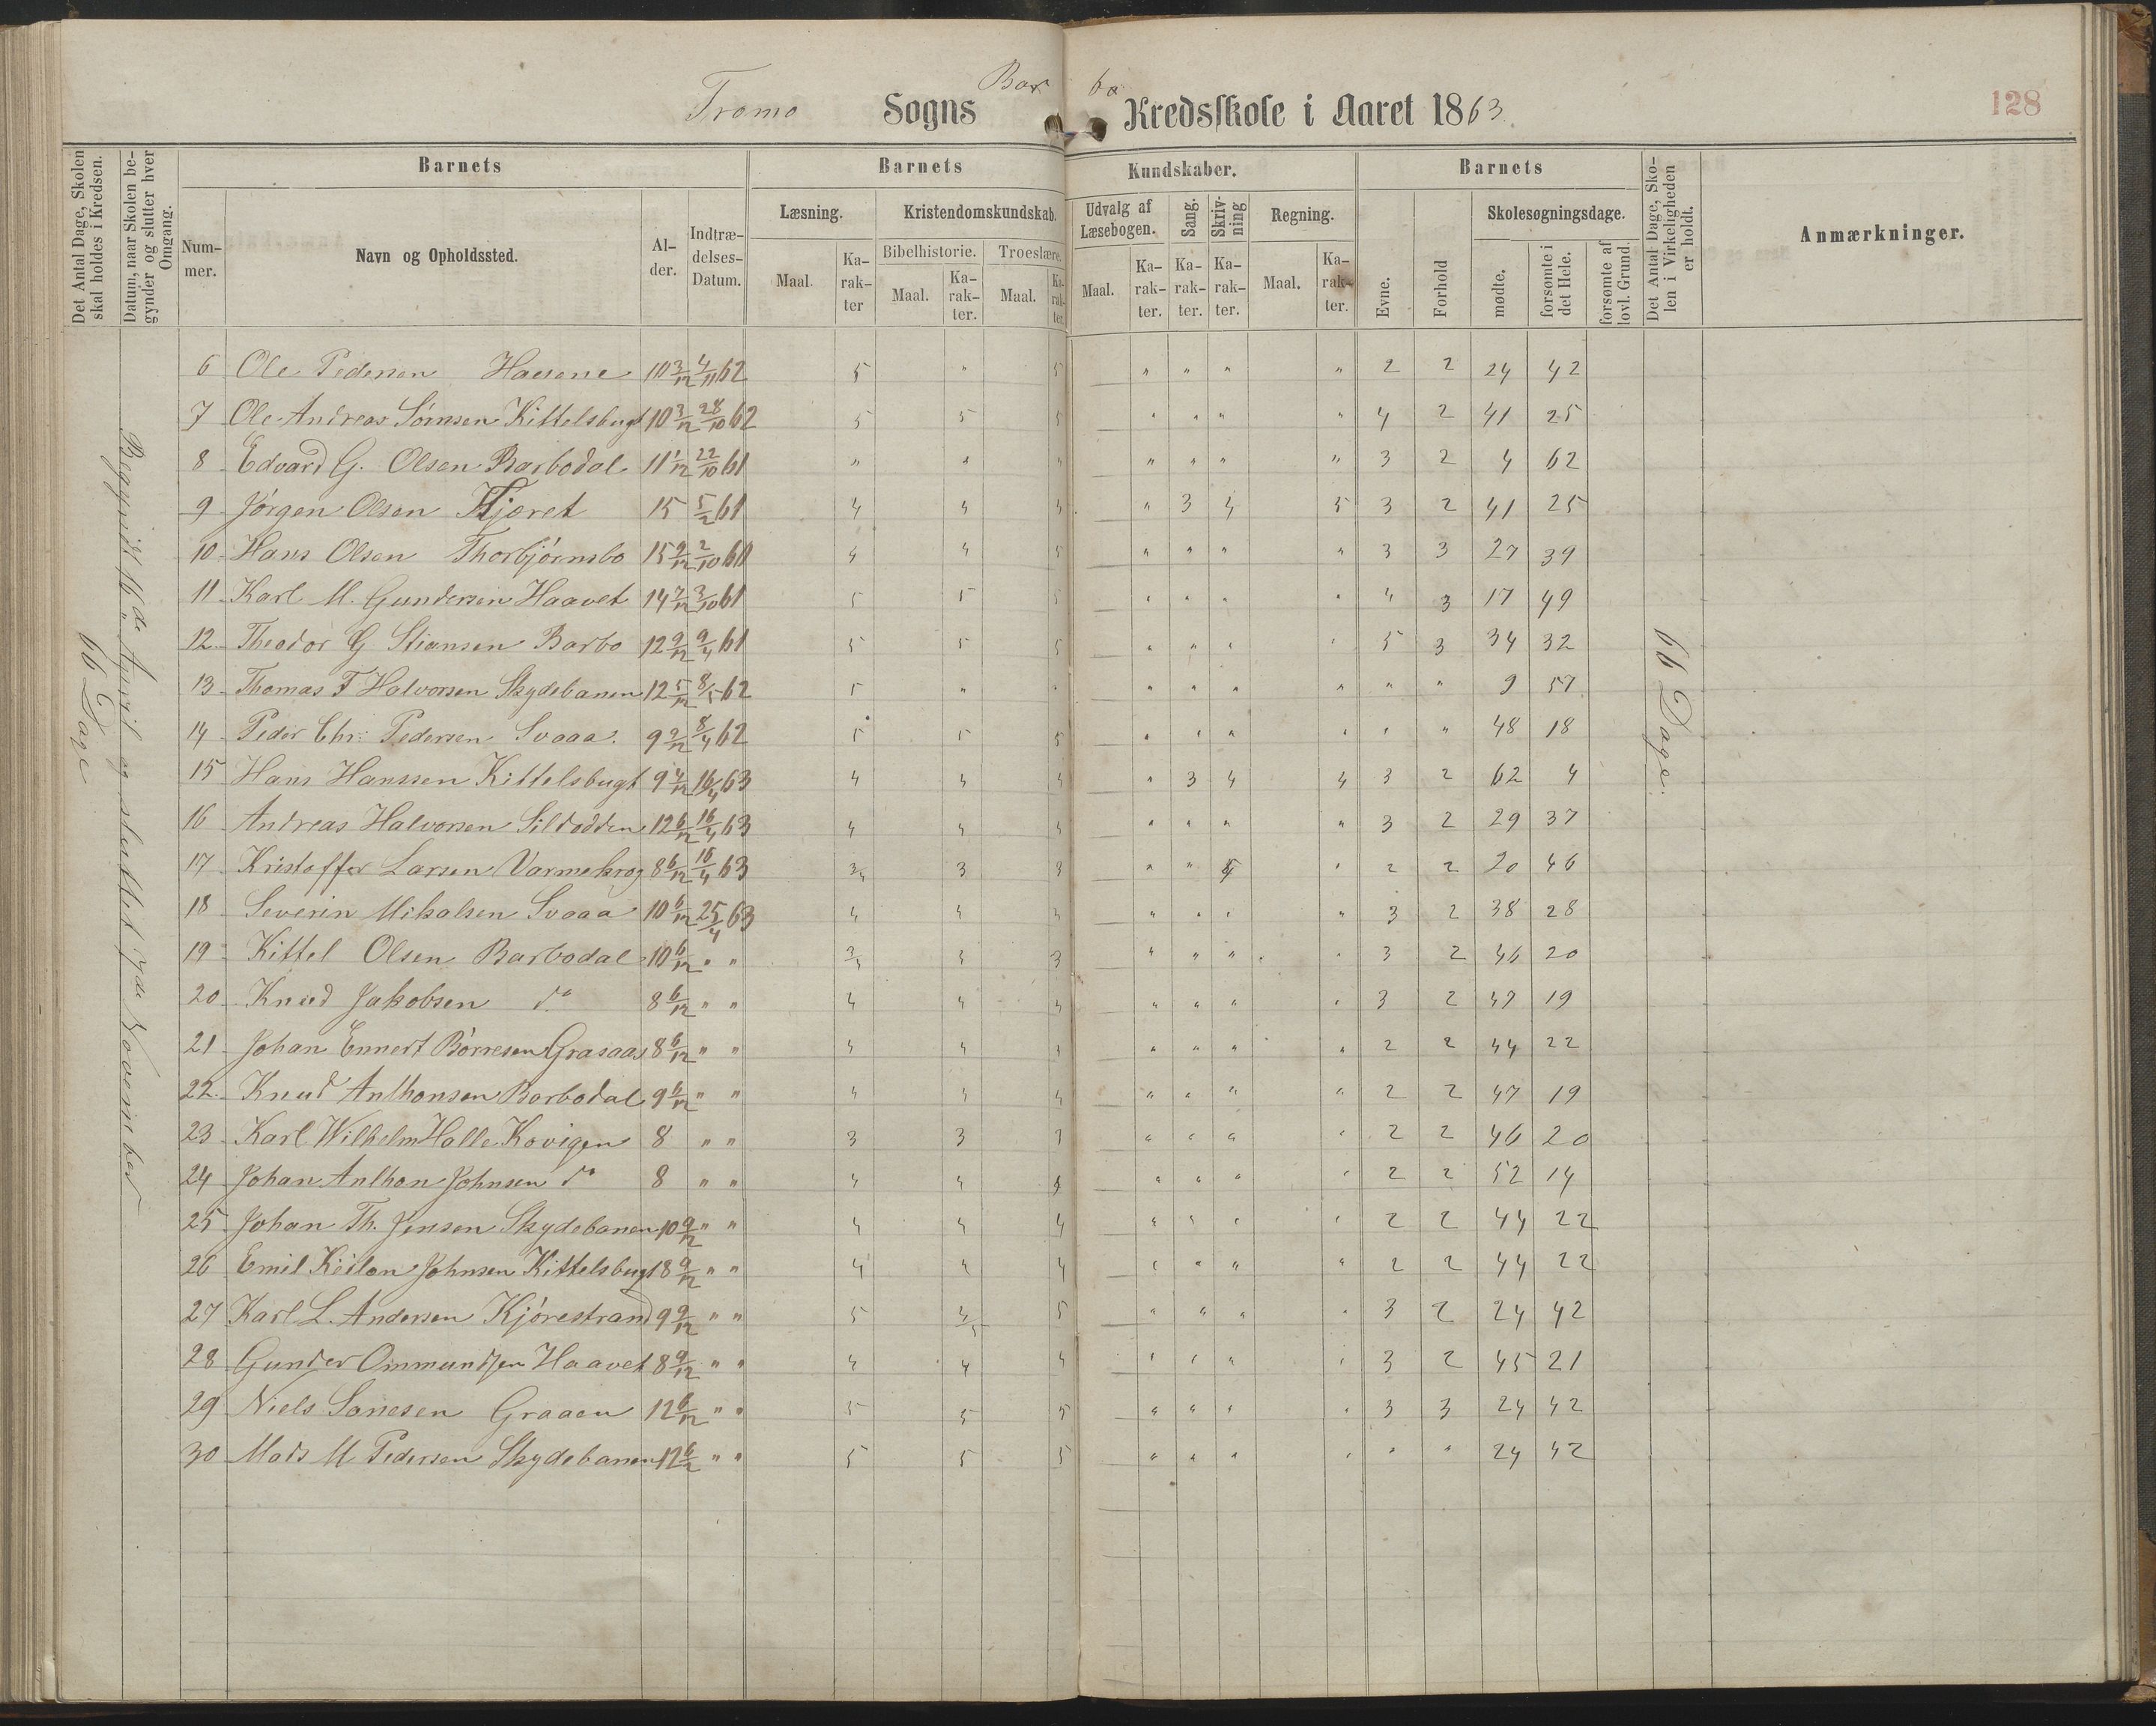 Tromø Sogns Barbo Kredsskole i Aaret 1863.
128
Det Antal Dage, Skolen skal holdes i Kredsen.
Datum, naar Skolen begynder og slutter hver Omgang.
Barnets
Barnets
Kundskaber.
Barnets
Det Antal Dage, Skolen i Virkeligheden er holdt.
Anmærkninger.
Nummer.
Navn og Opholdssted.
Alder.
Indtrædelses-Datum.
Læsning.
Kristendomskundskab.
Udvalg af Læsebogen.
Sang.
Skrivning
Regning.
Evne.
Forhold
Skolesøgningsdage.
Bibelhistorie.
Troeslære.
Maal.
Karakter
Maal.
Karakter.
Maal.
Karakter.
Maal.
Karakter.
Karakter.
Karakter.
Maal.
Karakter.
mødte.
forsømte i det Hele.
forsømte af lovl. Grund.
66 Dage
Begyndt 16de April og sluttet 7de November
66 Dage.
6 Ole Pedersen 10 3/12 4/11 62 5 " 5 " " " " 2 2 24 42
7 Ole Andreas Sörnsen Kittelsbugt 10 3/12 28/10 62 5 5 5 " " " " 4 2 41 25
8 Edvard G. Olsen Barbodal 11 1/12 22/10 61 " " " " " " " 3 2 4 62
9 Jörgen Olsen 15 5/2 61 4 4 4 " 3 4 5 3 2 41 25
10 Hans Olsen Thorbjörnsbo 15 9/12 2/10 60 4 4 5 " " " " 3 3 27 39
11 Karl M. Gundersen Haavet 14 7/12 3/10 61 5 5 5 " " " " 4 3 17 49
12 Theodor G Stiansen Barbo 12 9/12 9/4 61 5 5 5 " " " " 5 3 34 32
13 Thomas T Halvorsen Skydebanen 12 5/12 8/5 62 5 " " " " " " " " 9 57
14 Peder Chr. Pedersen Svaaa. 9 9/12 8/4 62 5 5 5 " " " " " " 48 18
15 Hans Hanssen Kittelsbugt 9 4/12 16/4 63 4 4 4 " 3 4 4 3 2 62 4
16 Andreas Halvorsen Sildodden 12 6/12 16/4 63 4 4 4 " " " " 3 2 29 37
17 Kristoffer Larsen Varmekrog 8 6/12 16/4 63 3/4 3 3 " " " 2 2 20 46
18 Severin Mikalsen Svaaa 10 6/12 25/4 63 4 4 4 " " " " 3 2 38 28
19 Kittel Olsen Barbodal 10 6/12 " " 3/4 4 3 " " " " 3 2 46 20
20 Knud Jakobsen do 8 6/12 " " 4 4 4 " " " " 3 2 47 19
21 Johan Ennert Börresen Grasaas 8 6/12 " " 4 4 4 " " " " 2 2 44 22
22 Knud Anthonsen Barbodal 9 6/12 " " 4 4 4 " " " " 2 2 47 19
23 Karl Wilhelm Halle Kovigen 8 " " 3 3 3 " " " " 2 2 46 20
24 Johan Anthon Johnsen do 8 " " 4 4 4 " " " " 2 2 52 14
25 Johan Th. Jensen Skydebanen 10 9/12 " " 4 4 4 " " " " 2 2 44 22
26 Emil Johnsen Kittelsbugt 8 9/12 " " 4 4 4 " " " " 2 2 44 22
27 Karl L. Andersen Kjörestrand 9 9/12 " " 5 4/5 5 " " " " 3 2 24 42
28 Gunder Ommundsen Haavet 8 9/12 " " 4 4 4 " " " " 3 2 45 21
29 Niels Graaen 12 6/12 " " 5 5 5 " " " " 3 3 24 42
30 Mads M Pedersen Skydebanen 12 6/12 " " 5 5 5 " " " " " " 24 42